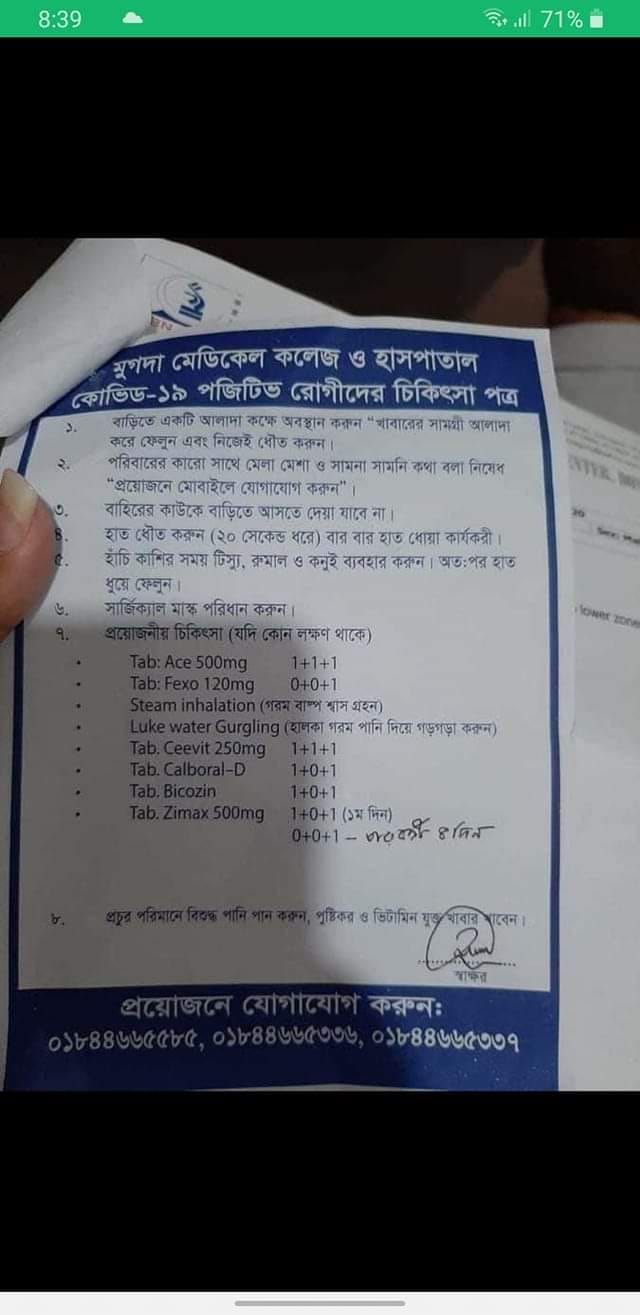 8:39
71%
মুগদা মেডিকেল কলেজ ও হাসপাতাল
কোভিড-১৯ পজিটিভ রোগীদের চিকিৎসা পত্র
১. বাড়িতে একটি আলাদা কক্ষে অবস্থান করুন "খাবারের সামগ্রী আলাদা
করে ফেলুন এবং নিজেই ধৌত করুন।
২. পরিবারের কারো সাথে মেলা মেশা ও সামনা সামনি কথা বলা নিষেধ
"প্রয়োজনে মোবাইলে যোগাযোগ করুন"।
৩. বাহিরের কাউকে বাড়িতে আসতে দেয়া যাবে না।
৪. হাত ধৌত করুন (২০ সেকেন্ড ধরে) বার বার হাত ধোয়া কার্যকরী।
৫. হাঁচি কাশির সময় টিস্যু, রুমাল ও কনুই ব্যবহার করুন। অত:পর হাত
ধুয়ে ফেলুন।
৬. সার্জিক্যাল মাস্ক পরিধান করুন।
৭. প্রয়োজনীয় চিকিৎসা (যদি কোন লক্ষণ থাকে)
• Tab: Ace 500mg 1+1+1
• Tab: Fexo 120mg 0+0+1
• Steam inhalation (গরম বাষ্প শ্বাস গ্রহন)
• Luke water Gurgling (হালকা গরম পানি দিয়ে গড়গড়া করুন)
• Tab. Ceevit 250mg 1+1+1
• Tab. Calboral-D 1+0+1
• Tab. Bicozin 1+0+1
• Tab. Zimax 500mg 1+0+1 (১ম দিন)
0+0+1 – পরবর্তী ৪ দিন
৮. প্রচুর পরিমানে বিশুদ্ধ পানি পান করুন, পুষ্টিকর ও ভিটামিন যুক্ত খাবার খাবেন।
স্বাক্ষর
প্রয়োজনে যোগাযোগ করুন:
০১৮৪৪৬৬৫৫৮৫, ০১৮৪৪৬৬৫৩৩৬, ০১৮৪৪৬৬৫৩৩৭
lower zone